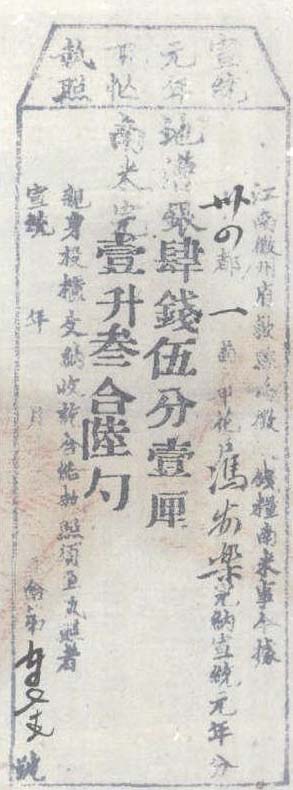 宣統
元年
下忙
執照
江南徽州府歙縣為徵 錢糧南米事今據
卅の都 一 啚 甲花戶馮 樂完納宣統元年分
地漕銀肆錢伍分壹厘
南米完壹升叁合陸勺
親身投櫃交納收訖合給執照須至執照者
宣統 年 月
號